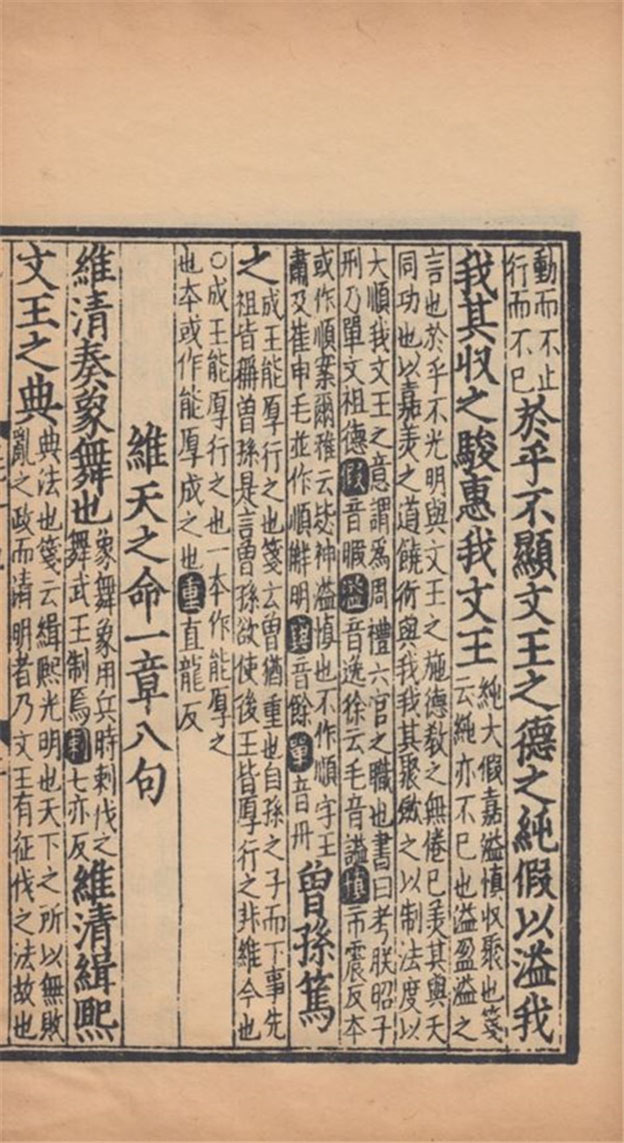 動而不止行而不已於乎不顯文王之德之純假以溢我
我其収之駿惠我文王純大假嘉溢慎収聚也箋云純亦不已也溢盈溢之
言也於乎不光明與文王之施德教之無倦已美其與天
同功也以嘉美之道饒衍與我我其聚斂之以制法度以
大順我文王之意謂爲周禮六官之職也書曰考朕昭子
刑乃單文祖德假音暇溢音逸徐云毛音謚慎市震反本
或作順案爾雅云毖神溢慎也不作順字王肅及崔申毛並作順解明與音餘單音丹曾孫篤
之成王能厚行之也箋云曾猶重也自孫之子而下事先祖皆稱曾孫是言曾孫欲使後王皆厚行之非維今也
○成王能厚行之也一本作能厚之
也本或作能厚成之也重直龍反
維天之命一章八句
維清奏象舞也象舞象用兵時刺伐之舞武王制焉刺七亦反維清緝熙
文王之典典法也箋云緝熙光明也天下之所以無敗亂之政而清明者乃文王有征伐之法故也